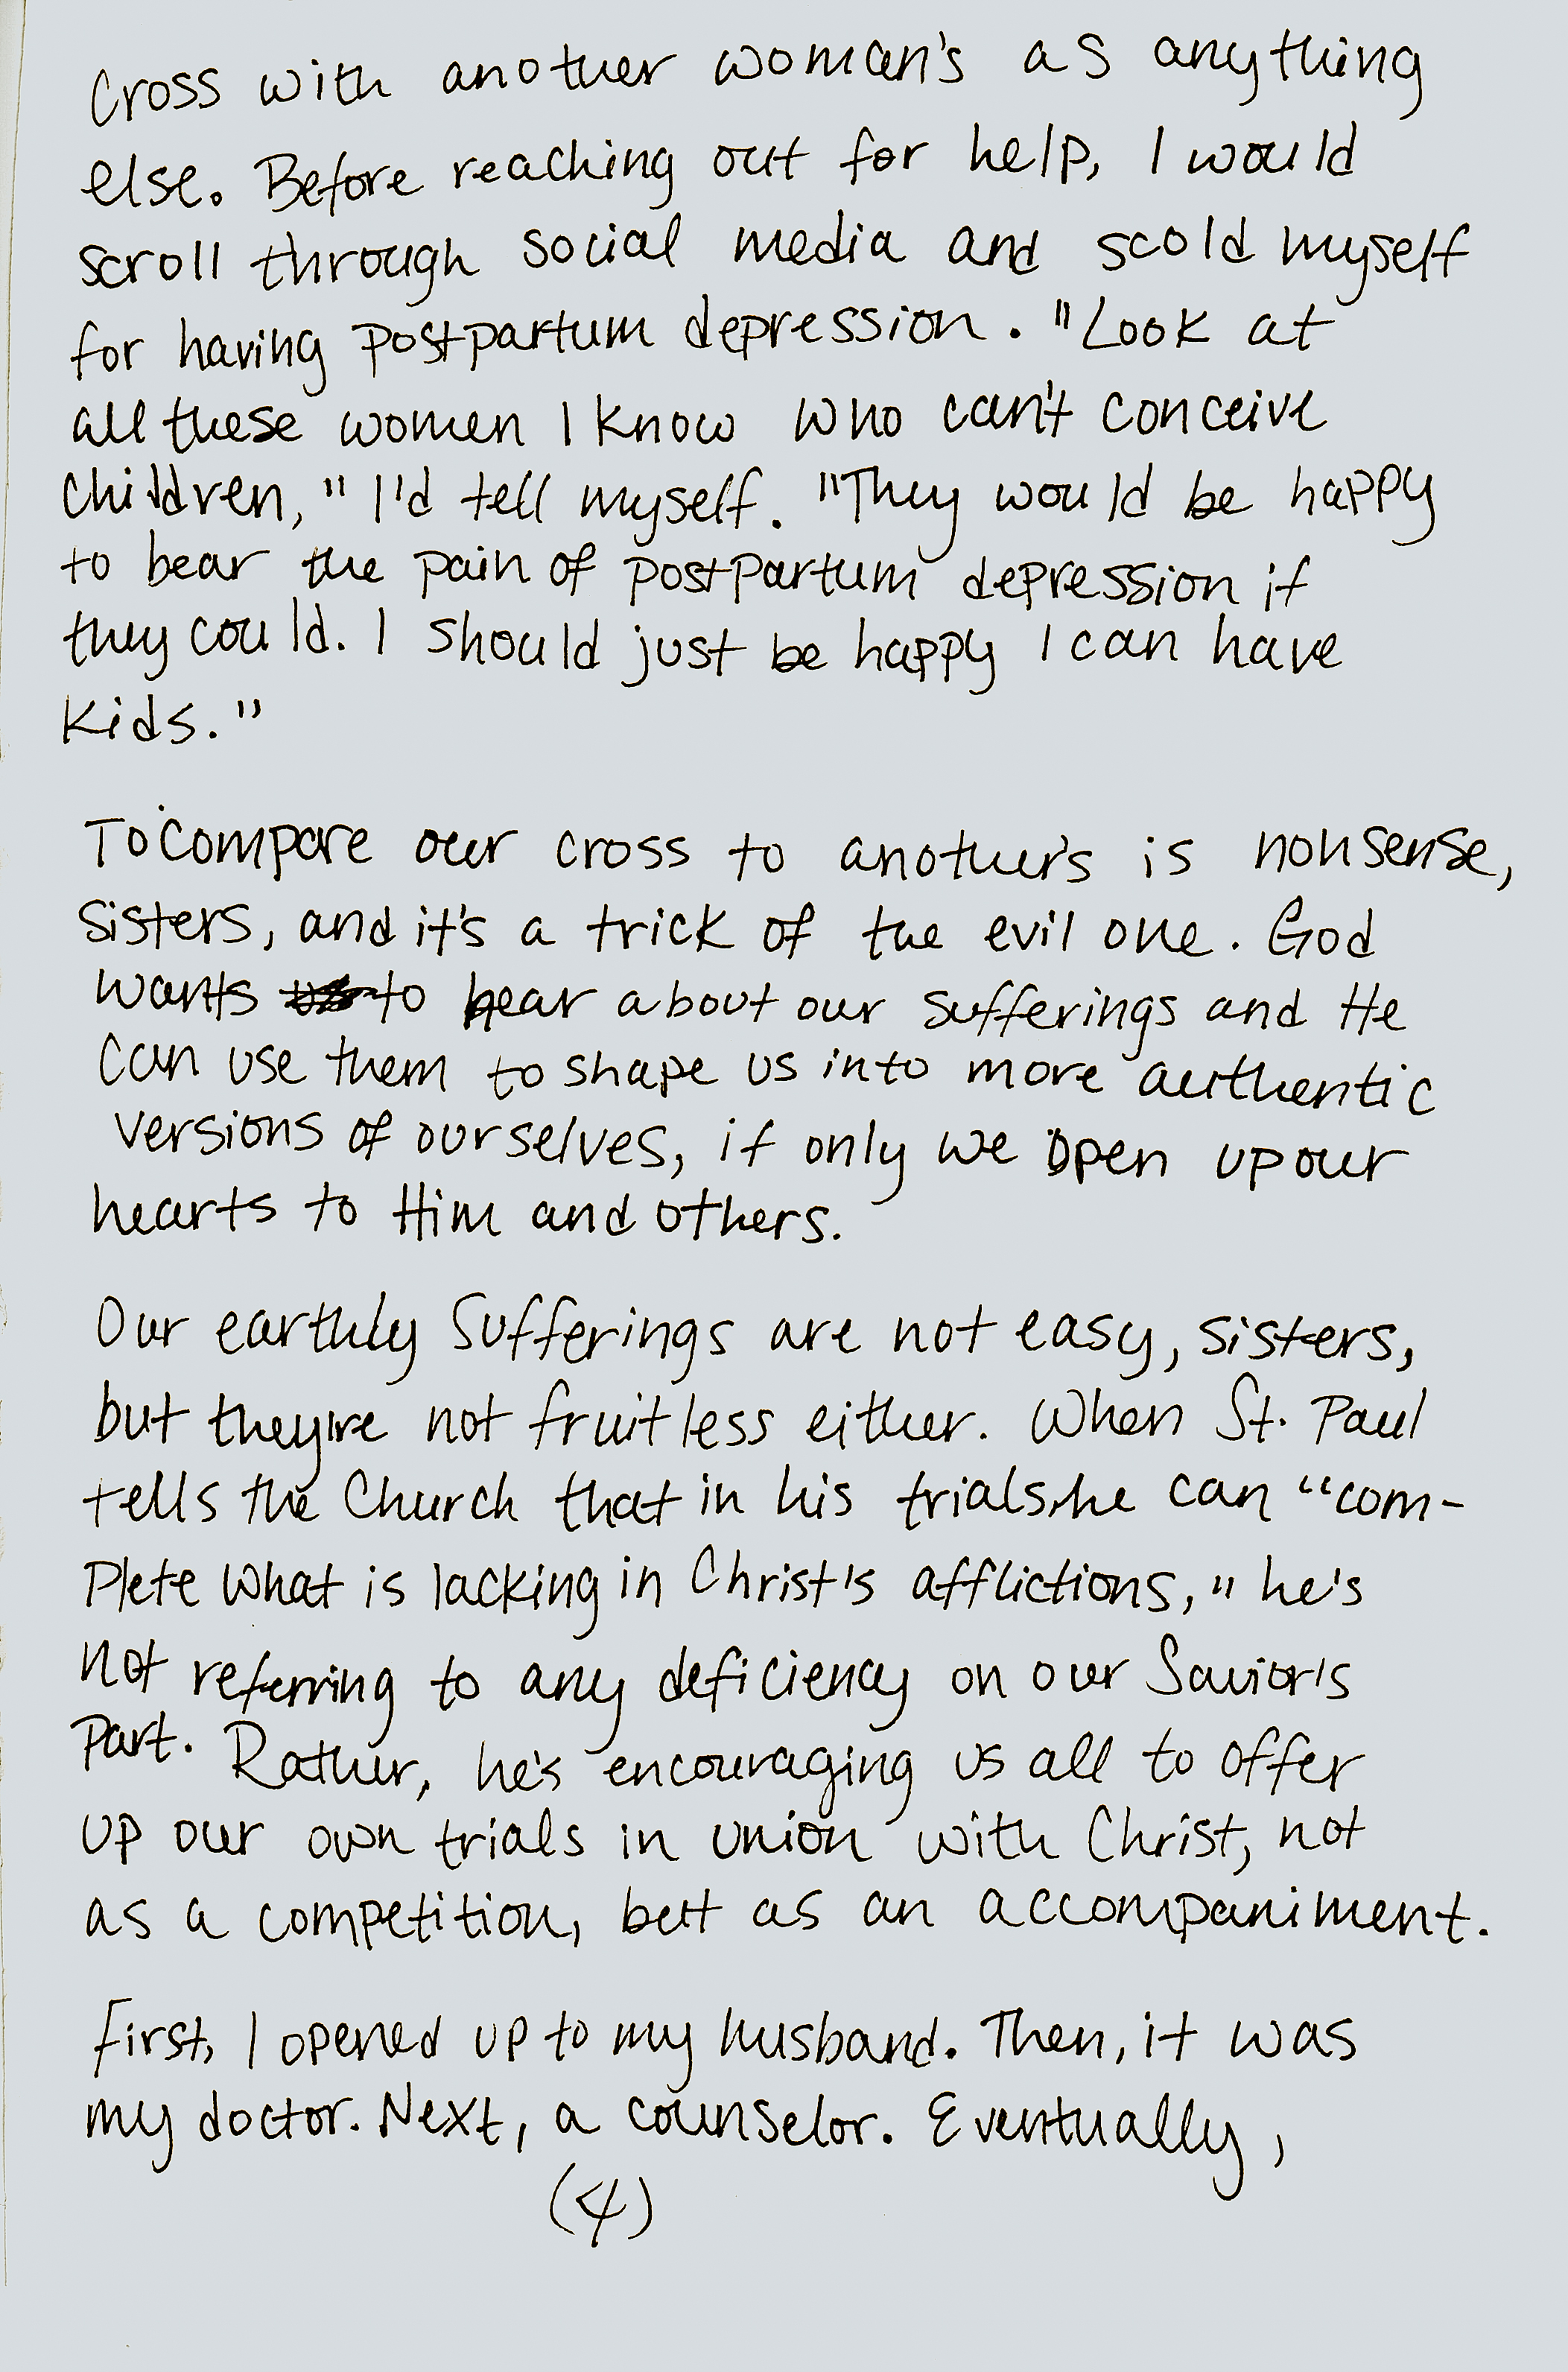 Cross with another woman's as anything
else. Before reaching out for help, I would
scroll through social media and scold myself
for having postpartum depression. "Look at
all these women I know who can't conceive
children," I'd tell myself. "They would be happy
to bear the pain of postpartum depression if
they could. I should just be happy I can have
kids."
To compare our cross to another's is nonsense,
sisters, and it's a trick of the evil one. God
wants to hear about our sufferings and He
can use them to shape us into more authentic
versions of ourselves, if only we open up our
hearts to Him and others.
Our earthly sufferings are not easy, sisters,
but they're not fruitless either. When St. Paul
tells the Church that in his trials, he can "com-
plete what is lacking in Christ's afflictions," he's
not referring to any deficiency on our Savior's
part. Rather, he's encouraging us all to offer
up our own trials in union with Christ, not
as a competition, but as an accompaniment.
First, I opened up to my husband. Then, it was
my doctor. Next, a counselor. Eventually,
(4)